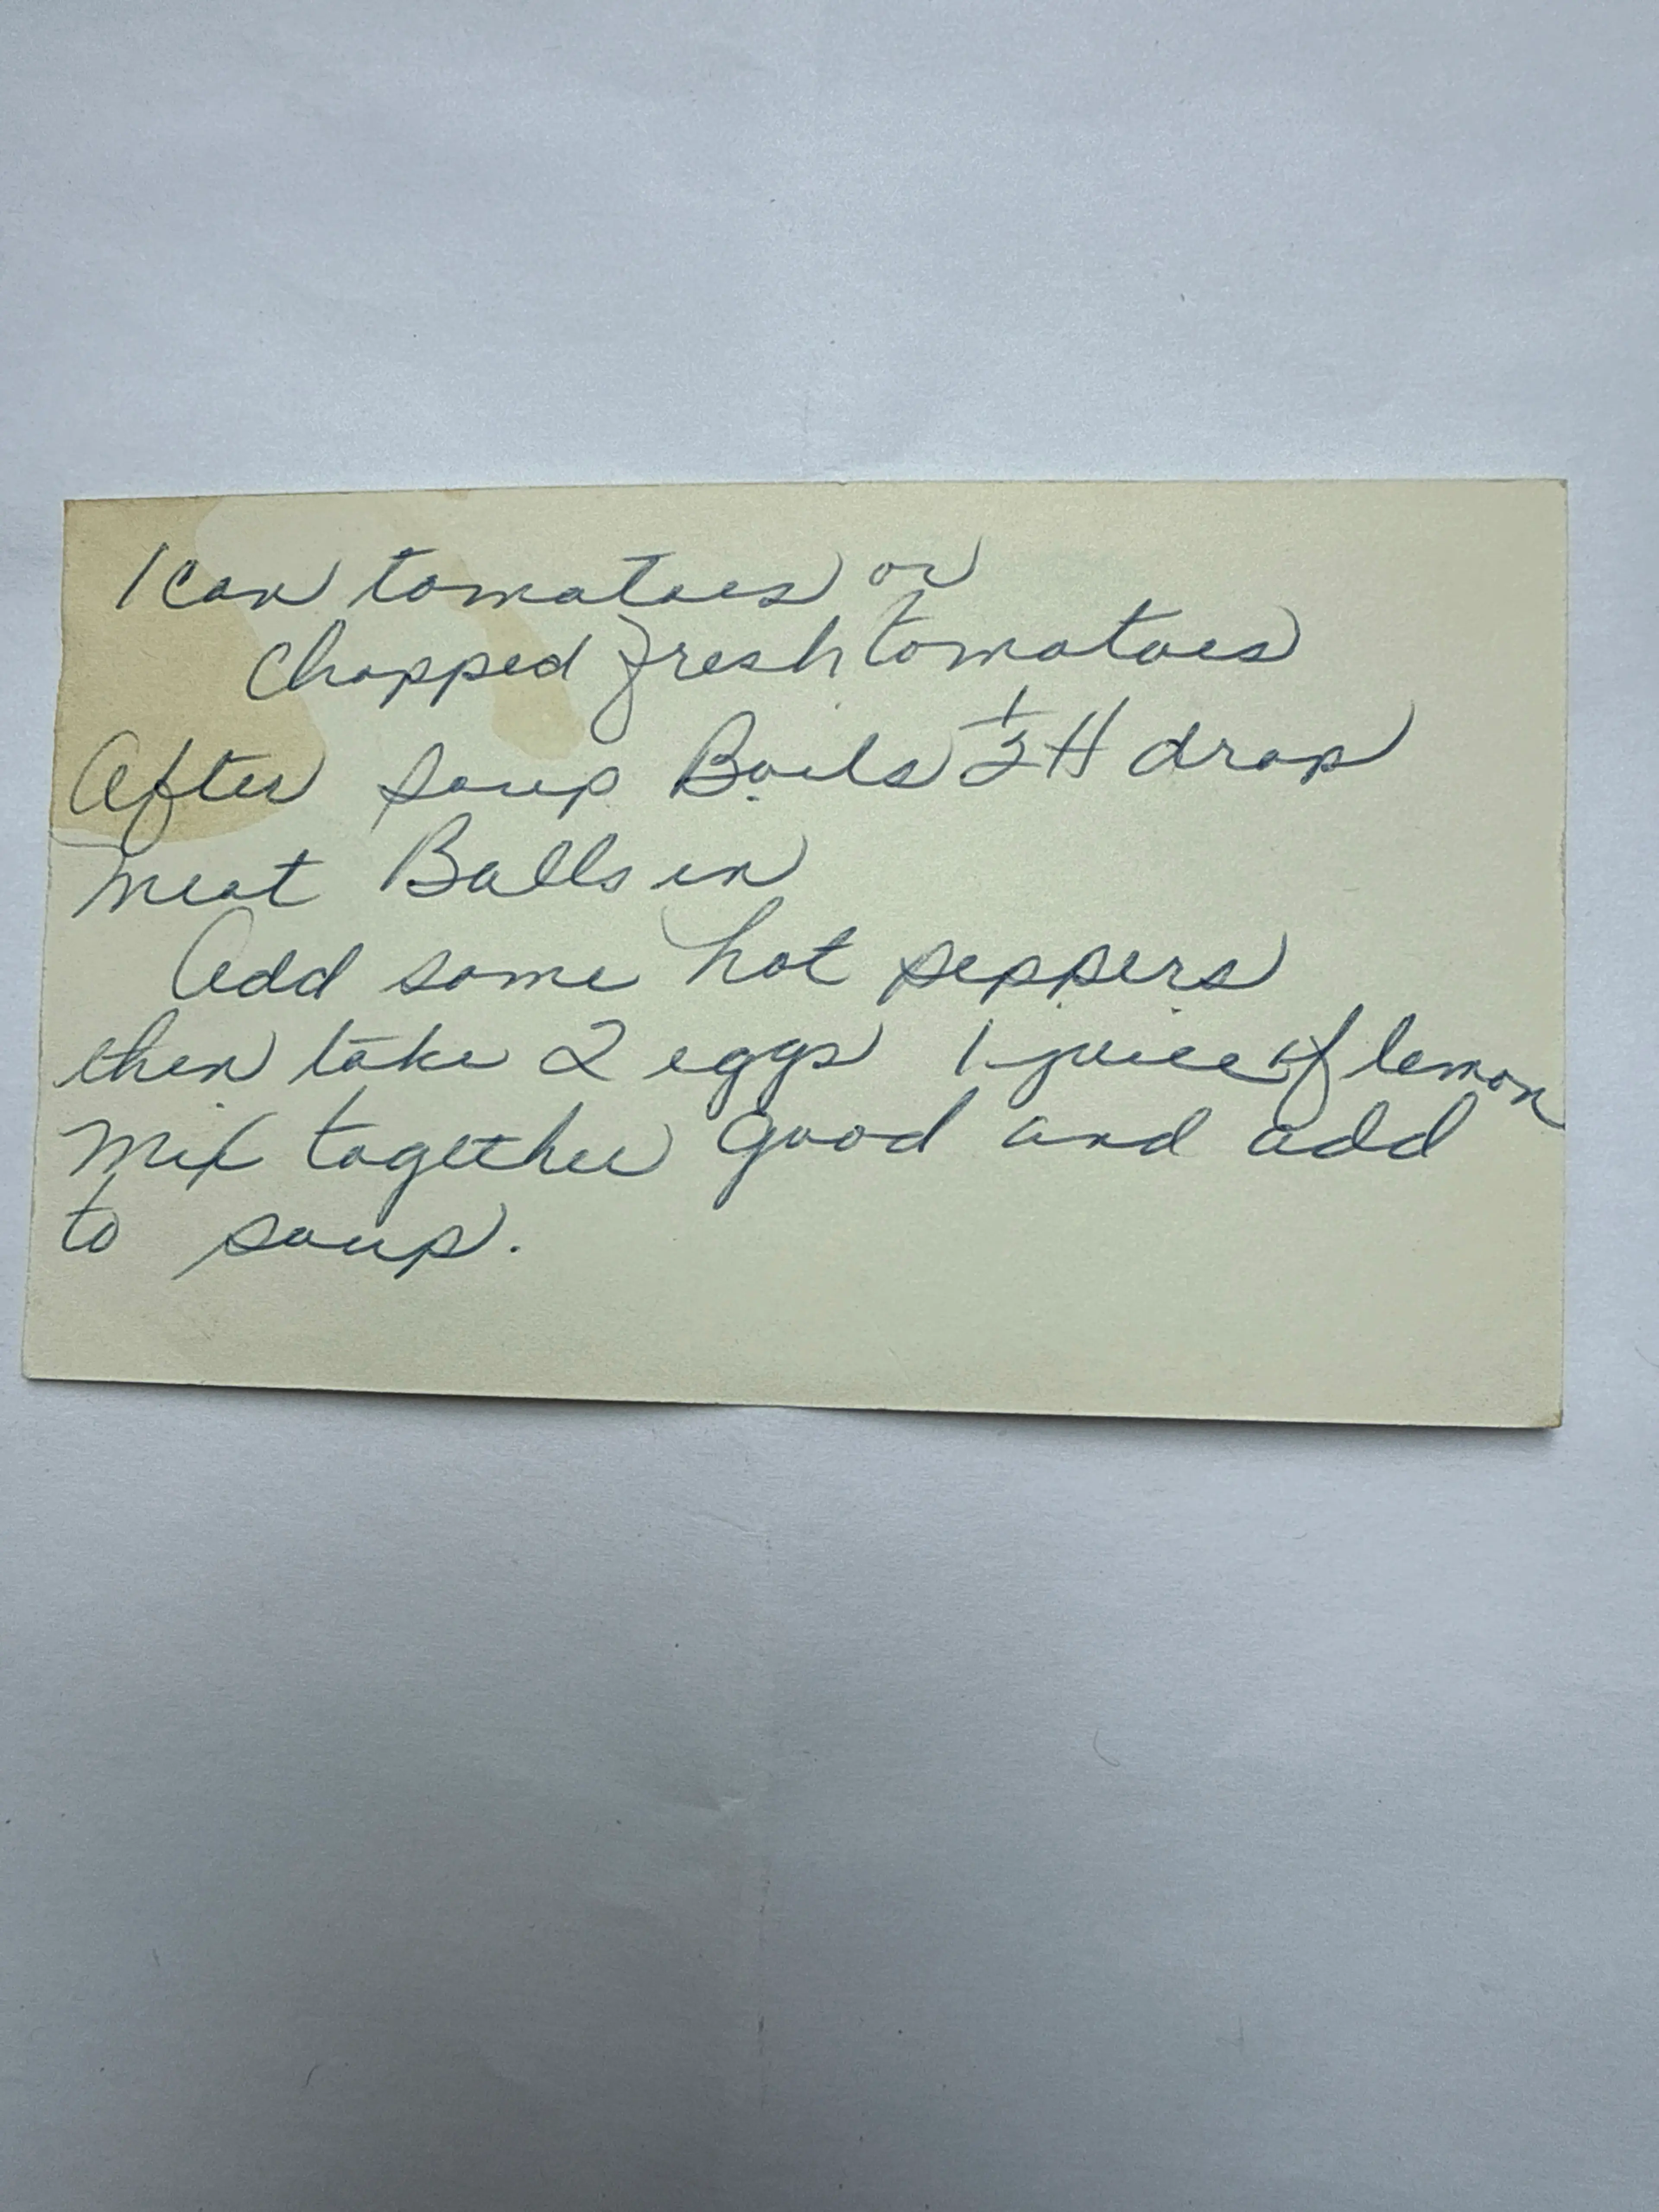 1 can tomatoes or
chopped fresh tomatoes
After soup Boils 1/2 H drop
meat Balls in
Add some hot peppers
then take 2 eggs 1 juice of lemon
Mix together good and add
to soup.